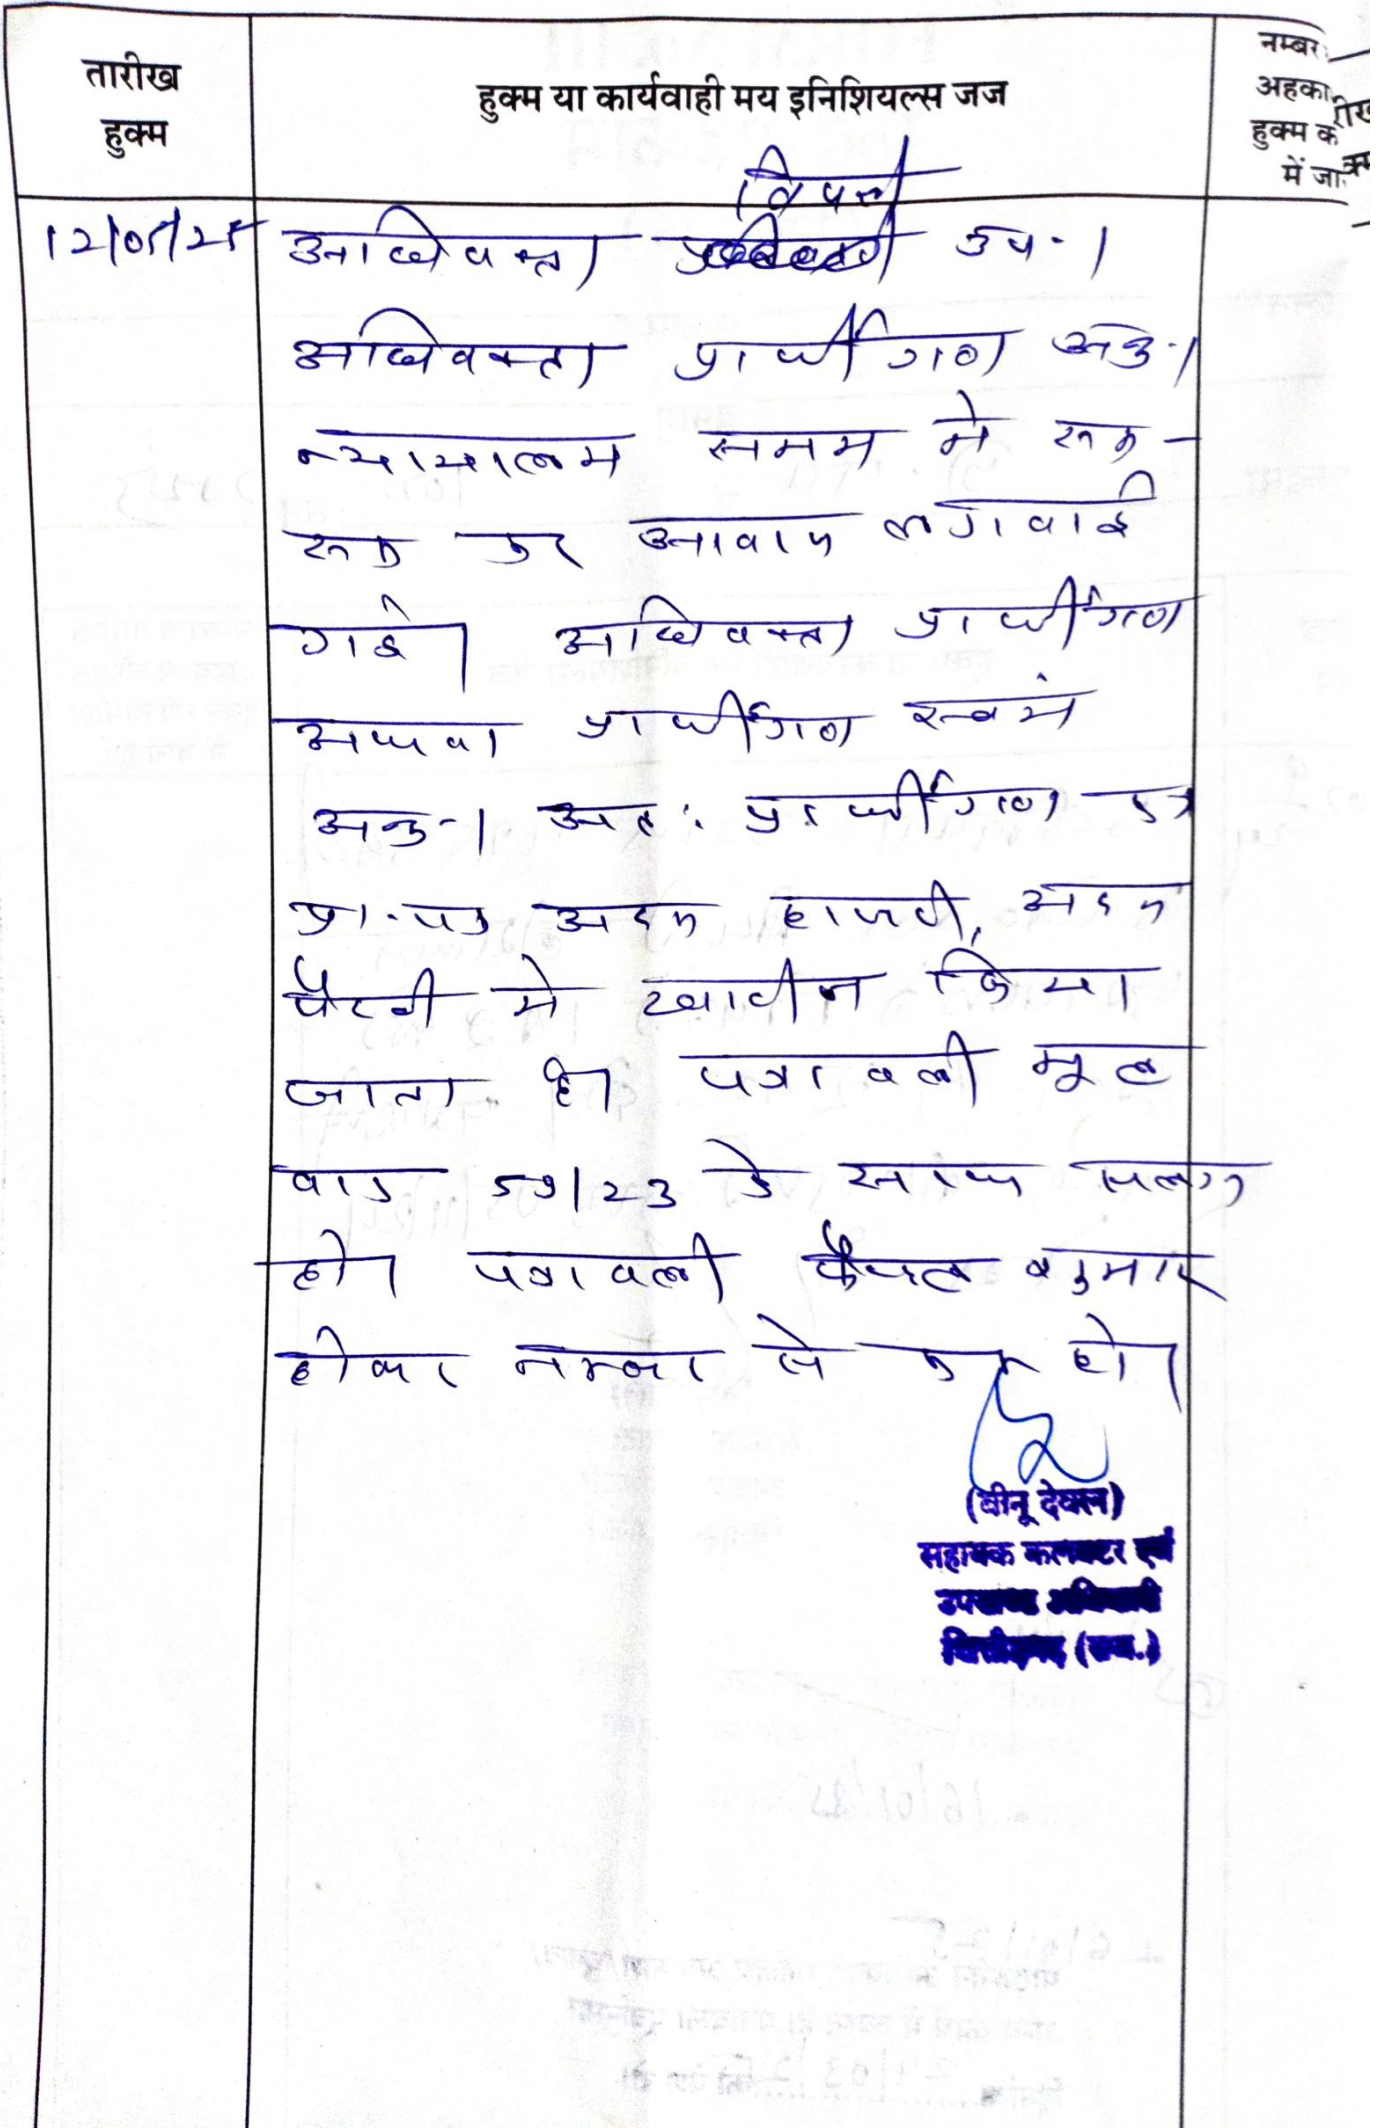 तारीख
हुक्म
हुक्म या कार्यवाही मय इनिशियल्स जज
नम्बर
अहका
हुक्म क
में जा
12/05/25
विपक्षी
अधिवक्ता उप.।
अधिवक्ता प्रार्थीगण अनु.।
न्यायालय समय में रूक-
रूक कर आवाज लगवाई
गई। अधिवक्ता प्रार्थीगण
अथवा प्रार्थीगण स्वयं
अनु.। अतः प्रार्थीगण का
प्रा.पत्र अदम हाजरी, अदम
पैरवी में खारीज किया
जाता है। पत्रावली मूल
वाद 59/23 के साथ संलग्न
हो। पत्रावली फैसल शुमार
होकर नम्बर से कम हो।
(बीनू देवल)
सहायक कलक्टर एवं
उपखण्ड अधिकारी
चित्तौड़गढ़ (राज.)